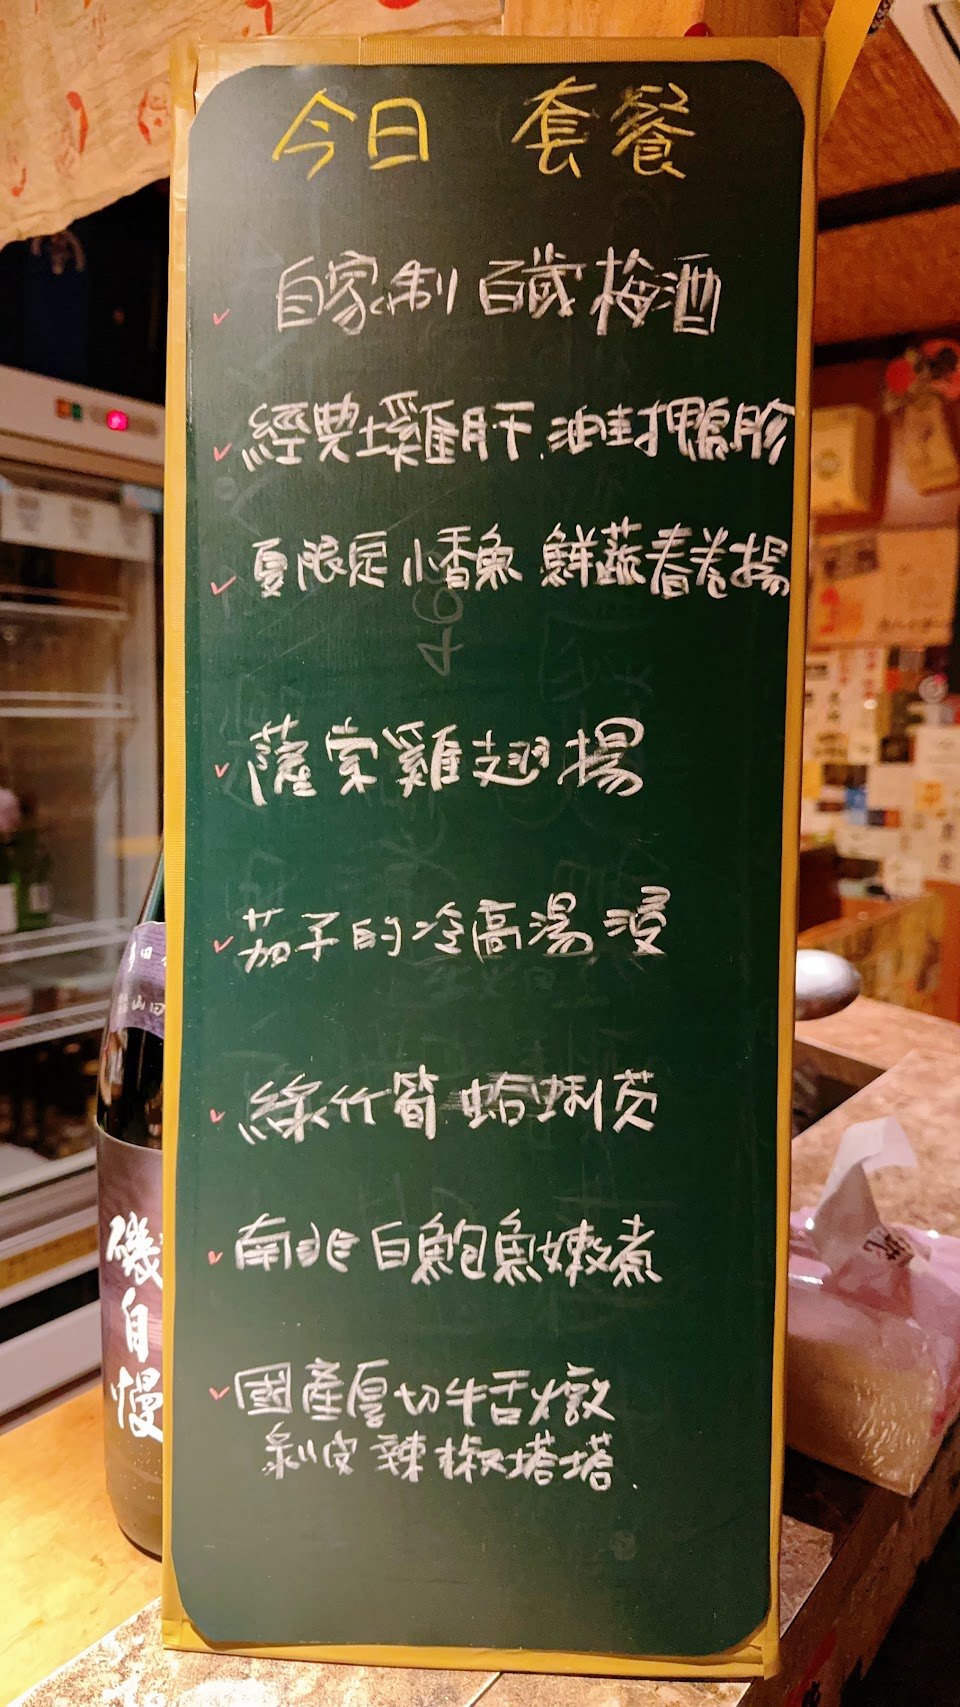 今日 套餐
自家制 百歲梅酒
經典土雞肝.油封鴨胗
夏限定小香魚 鮮蔬春卷揚
薩索雞翅揚
茄子的冷高湯浸
綠竹筍蛤蜊煲
南非白鮑魚嫩煮
國產厚切牛舌燉
剝皮辣椒塔塔.
山田
磯自慢